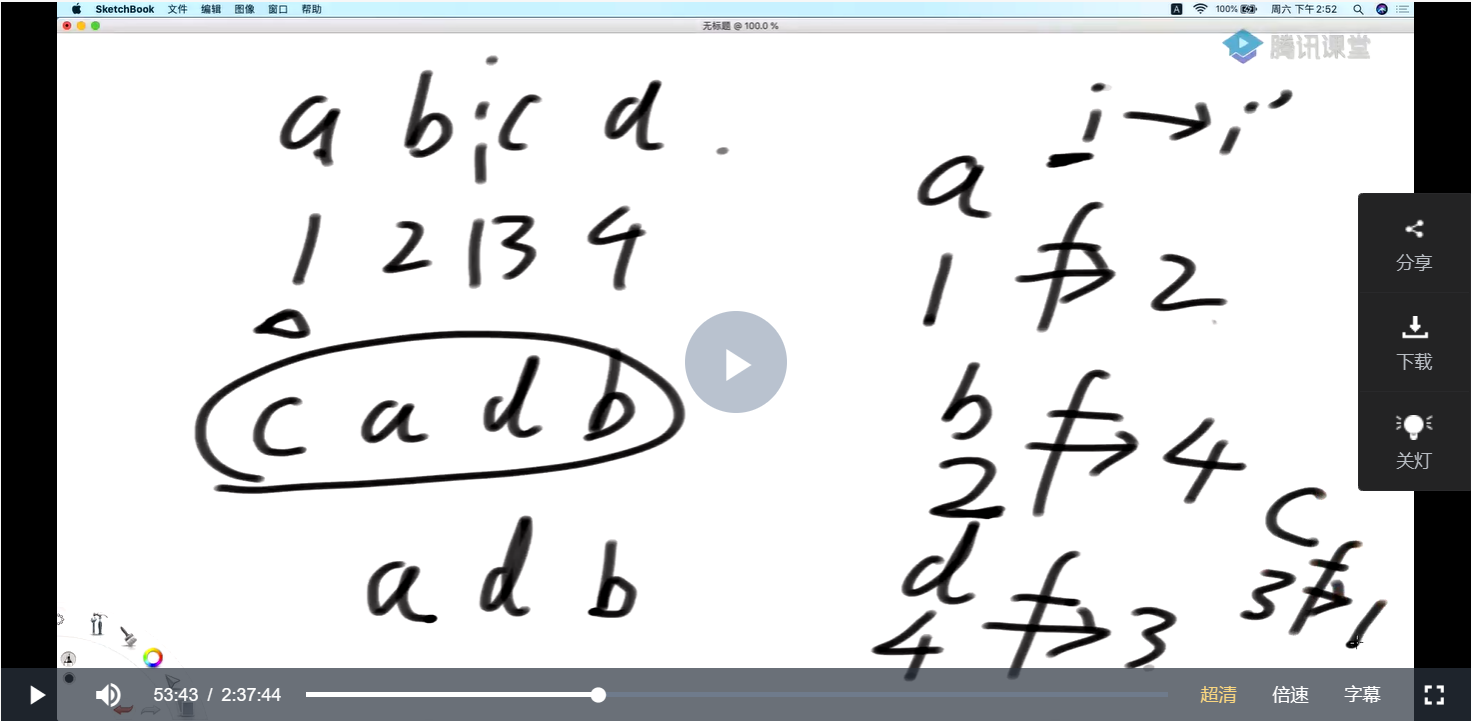 SketchBook 文件 编辑 图像 窗口 帮助 A 100% 周六 下午 2:52
无标题 @ 100.0 %
腾讯课堂
a b c d .
i
1 2 | 3 4
c a d b
a d b
i → i'
a
1 f→ 2
b
2 f→ 4
d
4 f→ 3
c
3 f→ 1
分享
下载
关灯
53:43 / 2:37:44 超清 倍速 字幕